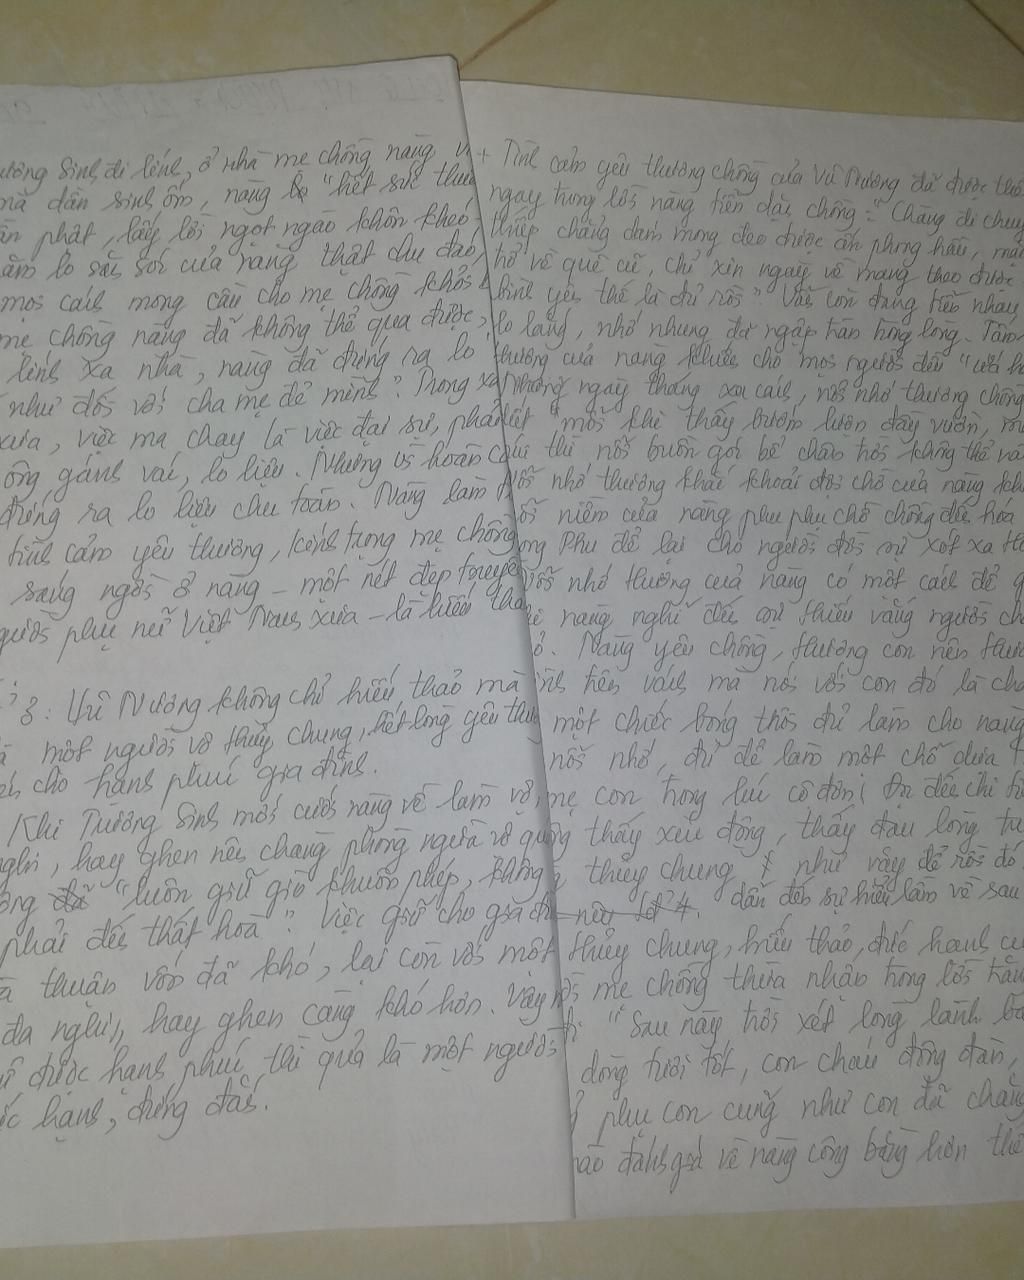 Sinh đi lính, ở nhà mẹ chồng nàng
mà dần sinh ốm, nàng "hết sức
phật, lấy lời ngọt ngào khôn khéo
lo săn sóc của nàng thật chu đáo,
mọi cách mong cầu cho mẹ chồng khỏi
mẹ chồng nàng đã không thể qua được,
lính xa nhà, nàng đã đứng ra lo
như đối với cha mẹ đẻ mình". Trong
xưa, việc ma chay là việc đại sự, phải
ông gánh vai, lo liệu. Nhưng vì hoàn
đứng ra lo liệu chu toàn. Nàng làm
tình cảm yêu thương, kính trọng mẹ chồng
sáng ngời ở nàng – một nét đẹp
người phụ nữ Việt Nam xưa – là hiếu
3: Vũ Nương không chỉ hiếu thảo mà
một người vợ thủy chung, hết lòng yêu
cho hạnh phúc gia đình.
Khi Trương Sinh mới cưới nàng về làm vợ,
nghi, hay ghen nên chàng phòng ngừa vợ quá
"luôn giữ gìn khuôn phép, không
phải đến thất hoà". Việc giữ cho gia
thuận vốn đã khó, lại còn với một
đa nghi, hay ghen càng khó hơn. Vậy
được hạnh phúc, thì quả là một người
hạnh, đúng đắn.
+ Tình cảm yêu thương chồng của Vũ Nương đã được
ngay trong lời nàng tiễn dặn chồng: "Chàng đi
thiếp chẳng dám mong đeo được ấn phong hầu, mặc
trở về quê cũ, chỉ xin ngày về mang theo được
bình yên thế là đủ rồi". Vẫn còn đang tiễn nhau
lo lắng, nhớ nhung đã ngập tràn trong lòng. Tấm
thương của nàng khiến cho mọi người đều "ứa
Những ngày tháng xa cách, nỗi nhớ thương chồng
"mỗi khi thấy bướm lượn đầy vườn,
thì nỗi buồn góc bể chân trời không thể
nhớ thương khắc khoải đợi chờ của nàng
niềm của nàng phụ phụ chờ chồng đến hóa
Phu để lại cho người đời sự xót xa
nhớ thương của nàng có một cách để
nàng nghĩ đến sự thiếu vắng người
Nàng yêu chồng, thương con nên
trên vách mà nói với con đó là
một chiếc bóng thôi đủ làm cho nàng
nỗi nhớ, đủ để làm một chỗ dựa
mẹ con trong lúc cô đơn!
thấy xúc động, thấy đau lòng
thủy chung như vậy để rồi đó
dẫn đến sự hiểu lầm về sau
thủy chung, hiếu thảo, đức hạnh
mẹ chồng thừa nhận trong lời
"Sau này trời xét lòng lành
dòng tươi tốt, con cháu đông đàn,
phụ con cũng như con đã chẳng
đánh giá về nàng công bằng hơn thế